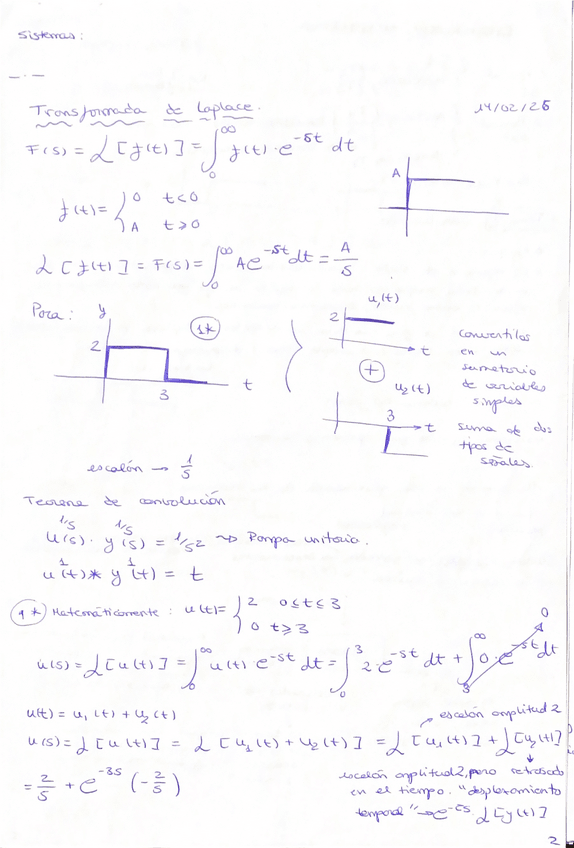 Sistemas:
Transformada de Laplace. 14/02/25
F(s) = ℒ[f(t)] = ∫₀^∞ f(t)·e^{-st} dt
A
f(t) = { 0 t<0
A t≥0
ℒ[f(t)] = F(s) = ∫₀^∞ Ae^{-st} dt = A/s
Para: y
2
1*
t
3
u₁(t)
2
t
+
u₂(t)
3
t
convertilos
en un
sumatorio
de variables
simples
suma de dos
tipos de
señales.
escalón → 1/s
Teorema de convolución
1/s 1/s
u(s) · y(s) = 1/s² ⇝ Rampa unitaria.
1 1
u(t) * y(t) = t
1* Matemáticamente: u(t) = { 2 0≤t≤3
0 t≥3
u(s) = ℒ[u(t)] = ∫₀^∞ u(t) e^{-st} dt = ∫₀^3 2·e^{-st} dt + ∫₃^∞ 0·e^{-st} dt 0
u(t) = u₁(t) + u₂(t)
escalón amplitud 2
u(s) = ℒ[u(t)] = ℒ[u₁(t) + u₂(t)] = ℒ[u₁(t)] + ℒ[u₂(t)]
= 2/s + e^{-3s} (-2/s)
escalón amplitud 2, pero retrasado
en el tiempo. "desplazamiento
temporal" → e^{-ts} ℒ[y(t)]
2